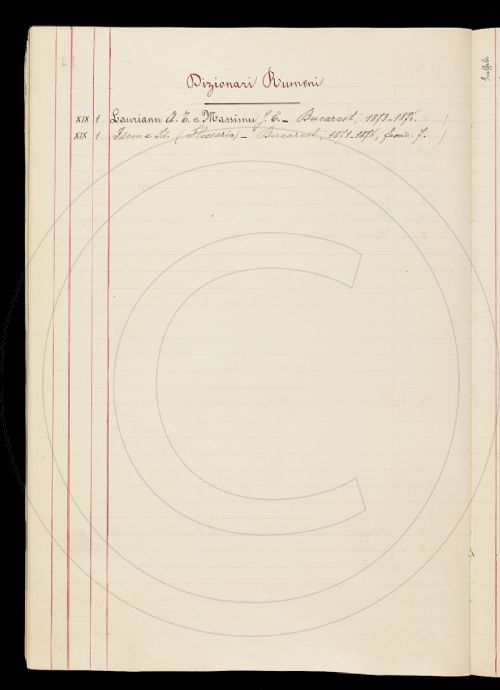 Dizionari Rumeni
XIX 1 Laurianu A. T. e Massimu J. C. – Bucarest, 1873-1876.
XIX 1 Idem e Id. (Glossario) – Bucarest, 1871-1876, fasic. 7.